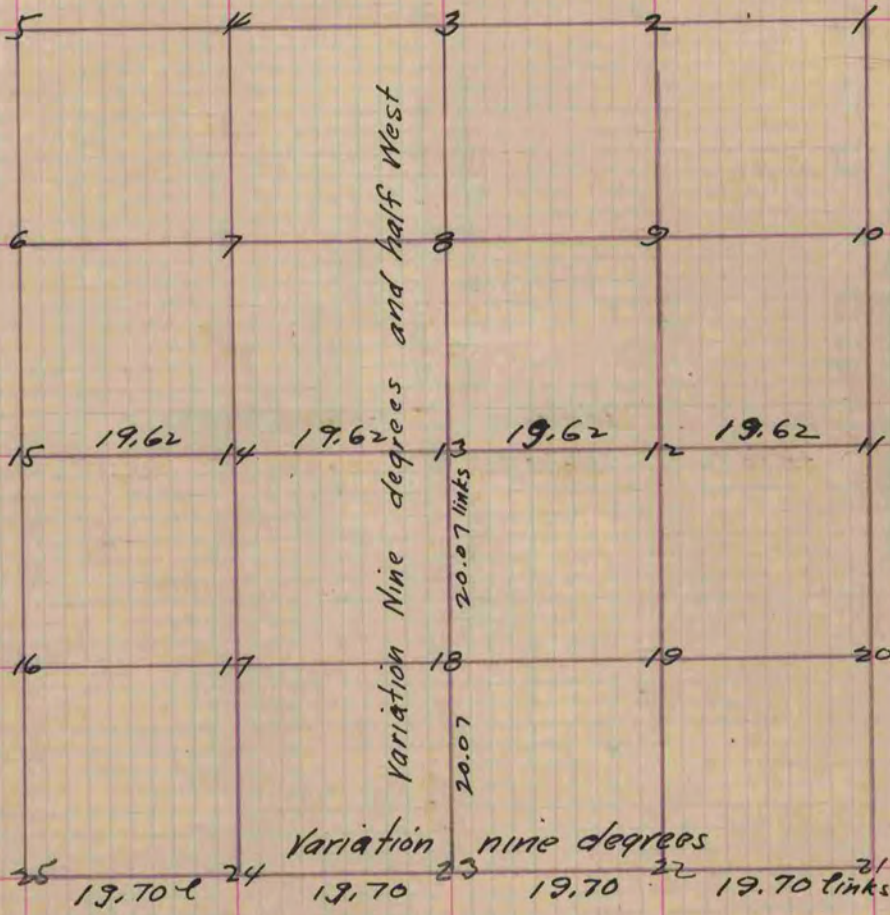 5 4 3 2 1
6 7 8 9 10
Variation Nine degrees and half West
19.62 19.62 19.62 19.62
15 14 13 12 11
20.07 links
16 17 18 19 20
20.07
Variation nine degrees
25 24 23 22 21
19.70 l 19.70 19.70 19.70 links